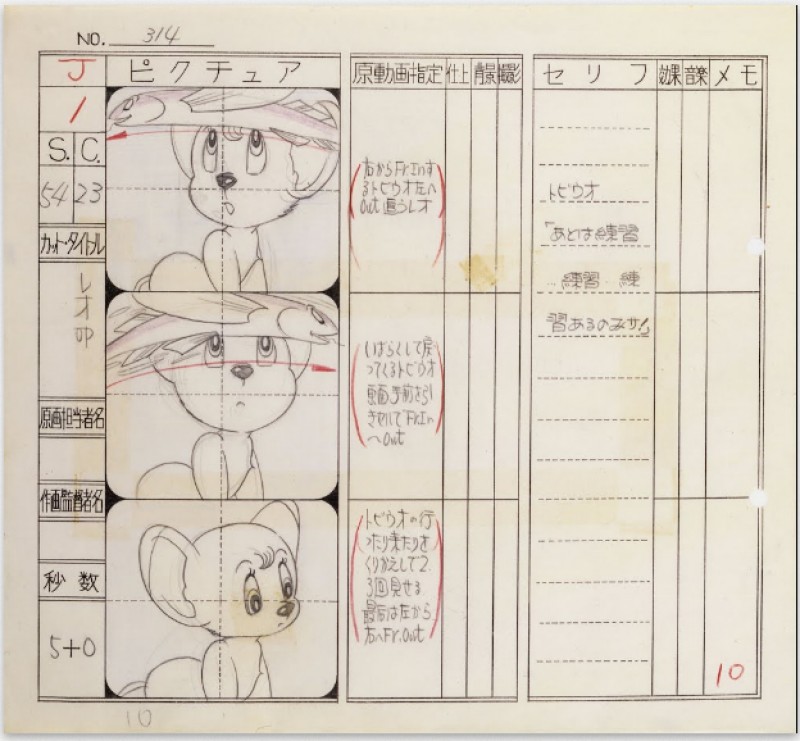 NO. 314
J
1
S. C.
54 23
カット・タイトル
レオ
原画担当者名
作画監督者名
秒数
5+0
ピクチュア
原動画指定
仕上
背景
撮影
右からFr.Inす
るトビウオ左へ
Out 追うレオ
しばらくして戻
ってくるトビウオ
画面手前を引
Fr.In
へOut
トビウオの行
ったり来たりを
くりかえして2.
3回見せる
最后は左から
右へFr.Out
セリフ
効果
音楽
メモ
トビウオ
「あとは練習
練習 練
習あるのみサ!」
10
10